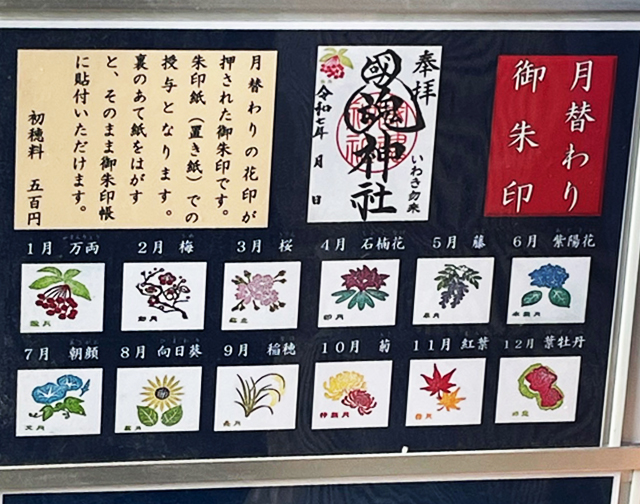 月替わり
御朱印
奉拝
いわき勿来
國魂神社
令和七年　月　日
月替わりの花印が
押された御朱印です。
朱印紙（置き紙）での
授与となります。
裏のあて紙をはがす
と、そのまま御朱印帳
に貼付いただけます。
初穂料　五百円
1月　万両
2月　梅
3月　桜
4月　石楠花
5月　藤
6月　紫陽花
7月　朝顔
8月　向日葵
9月　稲穂
10月　菊
11月　紅葉
12月　葉牡丹